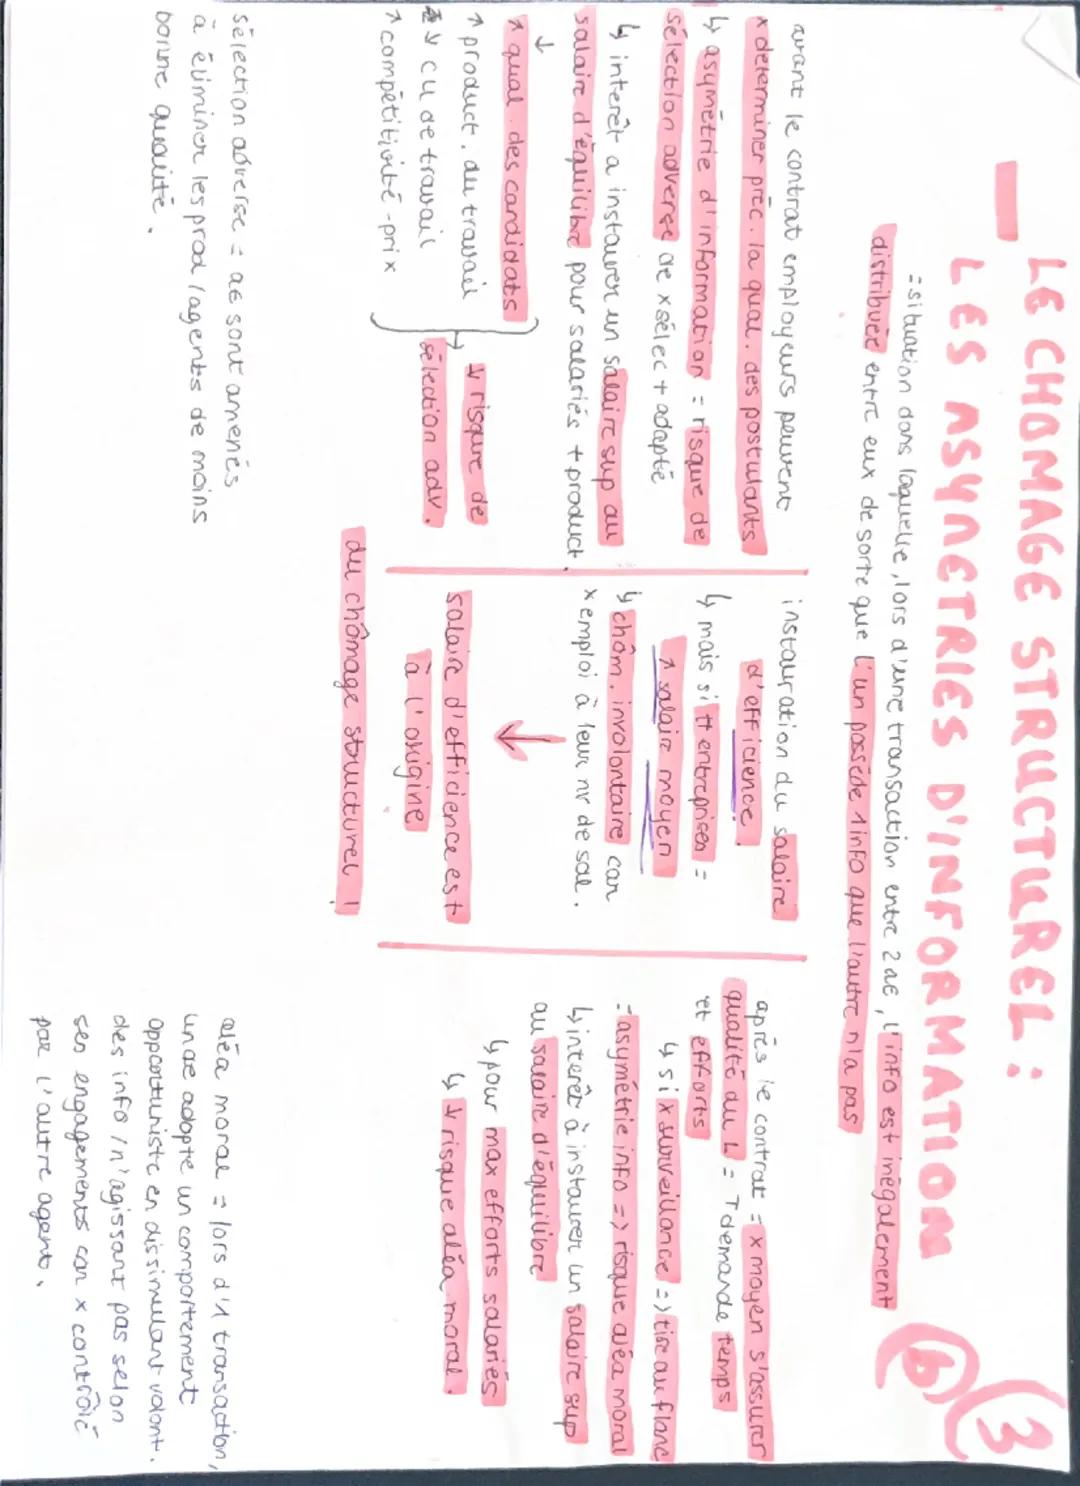 LE CHOMAGE STRUCTUREL :
LES ASYMETRIES D'INFORMATION
3
b
= situation dans laquelle, lors d'une transaction entre 2 ae, l'info est inégalement
distribuée entre eux de sorte que l'un possède 1 info que l'autre n'a pas
avant le contrat employeurs peuvent
x determiner préc. la qual. des postulants
↳ asymétrie d'information = risque de
sélection adverse de x sélec + adapté
↳ interêt a instaurer un salaire sup au
salaire d'équilibre pour salariés + product.
↓
↑ qual. des candidats
↑ product. du travail
↓ cu de travail
↑ compétitivité-prix
↓ risque de
sélection adv.
instauration du salaire
d'efficience.
↳ mais si tt entreprises =
↑ salaire moyen
↳ chôm. involontaire car
x emploi à leur nv de sal.
↓
salaire d'efficience est
à l'origine
du chômage structurel !
après le contrat = x moyen s'assurer
qualité du L = T demande temps
et efforts
↳ si x surveillance => tire au flanc
= asymétrie info => risque aléa moral
↳ interêt à instaurer un salaire sup
au salaire d'équilibre
↳ pour max efforts salariés
↳ ↓ risque aléa moral.
sélection adverse = ae sont amenés
à éliminer les prod / agents de moins
bonne qualité.
aléa moral = lors d'1 transaction,
un ae adopte un comportement
opportuniste en dissimulant volont.
des info / n'agissant pas selon
ses engagements car x contrôlé
par l'autre agent.